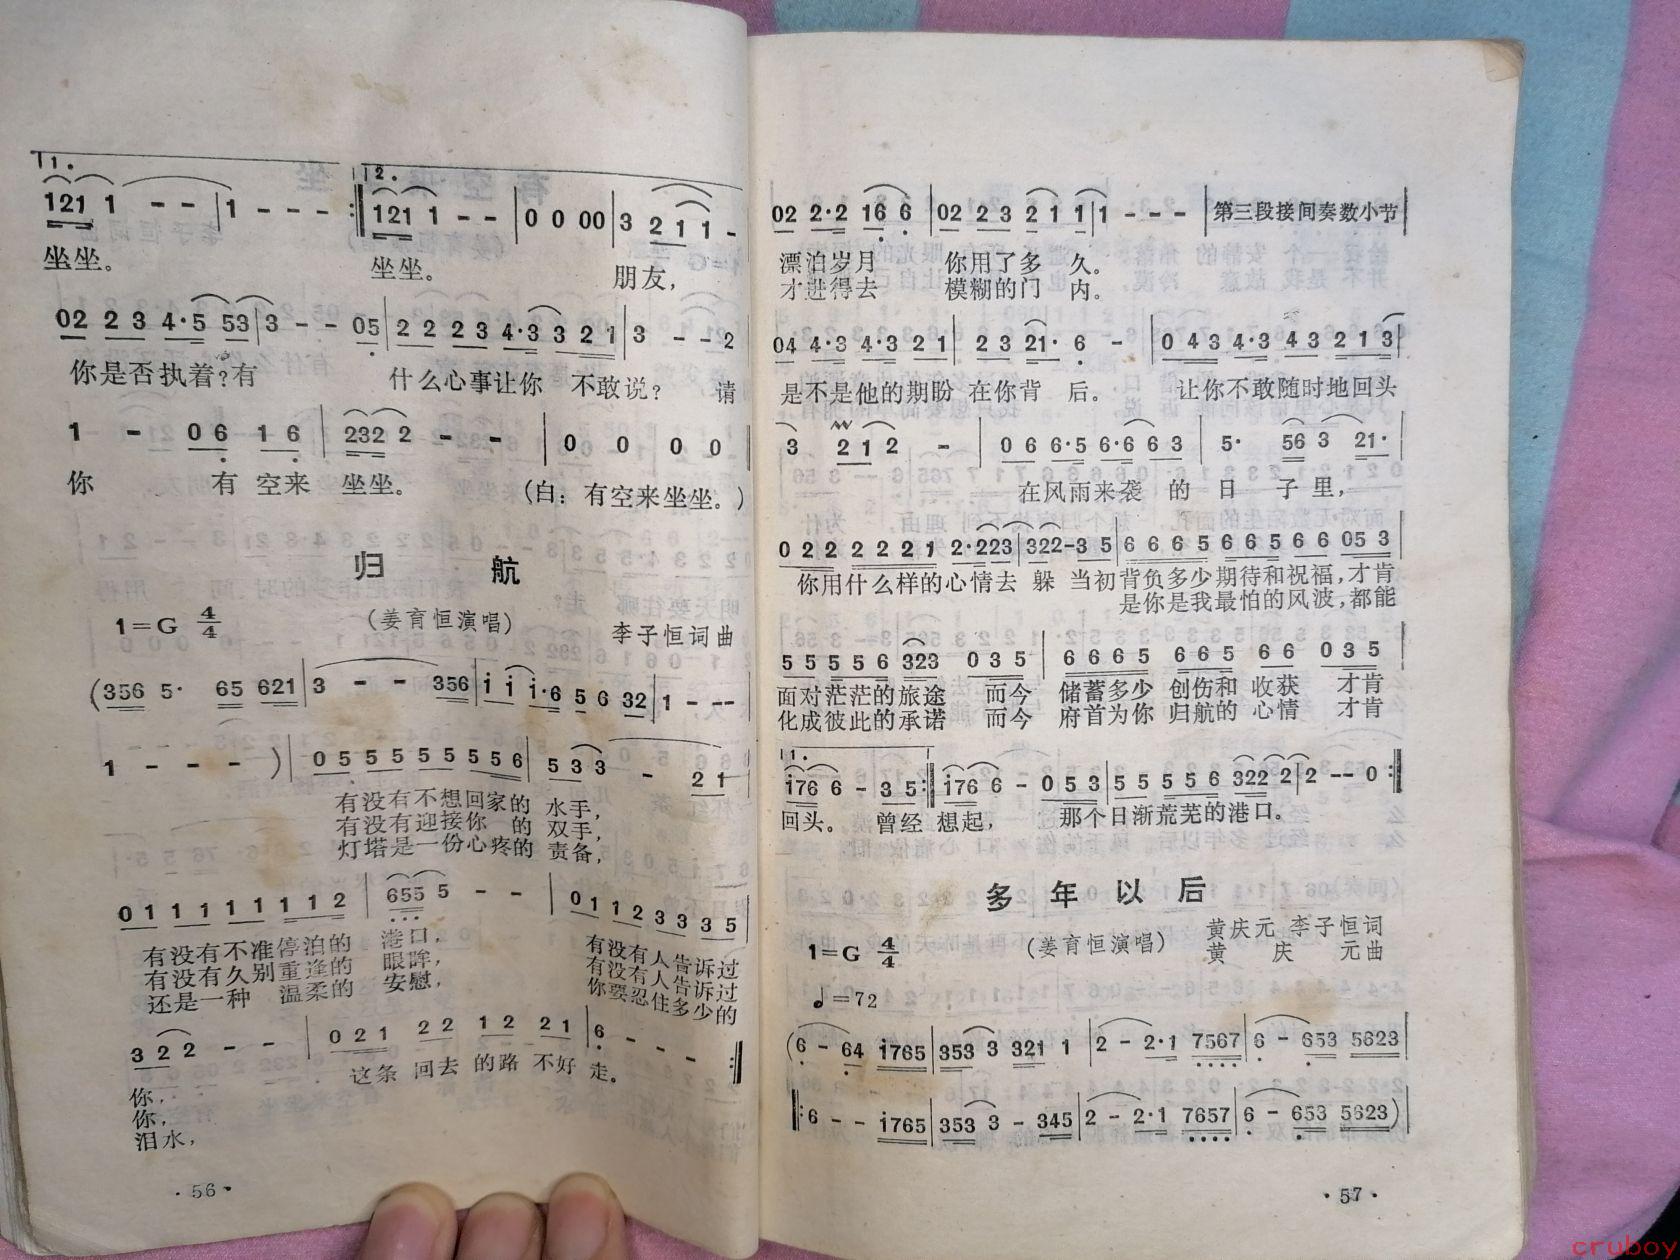 1.
2.
121 1 - - | 1 - - - :‖ 121 1 - - | 0 0 00 | 3 2 1 1 -
坐坐。 坐坐。 朋友，
02 2 3 4·5 53 | 3 - - 05 | 2 2 2 3 4·3 3 2 1 | 3 - - 2
你是否执着？有 什么心事让你 不敢说？ 请
1 - 0 6 1 6 | 232 2 - - | 0 0 0 0
你 有 空来 坐坐。 （白：有空来坐坐。）
归 航
1=G 4/4 （姜育恒演唱） 李子恒词曲
(356 5· 65 621 | 3 - - 356 | i i i·6 5 6 32 | 1 - - -
1 - - - ) | 0 5 5 5 5 5 5 5 6 | 5 3 3 - 2 1
有没有不想回家的 水手，
有没有迎接你 的 双手，
灯塔是一份心疼的 责备，
0 1 1 1 1 1 1 1 2 | 655 5 - - | 0 1 1 2 3 3 3 5
有没有不准停泊的 港口， 有没有人告诉过
有没有久别重逢的 眼眸， 有没有人告诉过
还是一种 温柔的 安慰， 你要忍住多少的
3 2 2 - - | 0 2 1 2 2 1 2 2 1 | 6 - - - :‖
你， 这条 回去 的路 不好 走。
你，
泪水，
·56·
02 2·2 16 6 | 02 2 3 2 1 1 | 1 - - - | 第三段接间奏数小节
漂泊岁月 你用了多 久。
才进得去 模糊的门 内。
04 4·3 4·3 2 1 | 2 3 21· 6 - | 0 4 3 4·3 4 3 2 1 3
是不是他的期盼 在你背 后。 让你不敢随时地回头
3 2 1 2 - | 0 6 6·5 6·6 6 3 | 5· 56 3 21·
在风雨来袭 的 日 子 里，
0 2 2 2 2 2 1 2·223 | 322 - 3 5 | 6 6 6 5 6 6 5 6 6 05 3
你用什么样的心情去 躲 当初背负多少期待和祝福，才肯
是你是我最怕的风波，都能
5 5 5 5 6 323 0 3 5 | 6 6 6 5 6 6 5 6 6 0 3 5
面对茫茫的旅途 而今 储蓄多少 创伤和 收获 才肯
化成彼此的承诺 而今 府首为你 归航的 心情 才肯
1.
i76 6 - 3 5 :‖ i76 6 - 0 5 3 | 5 5 5 5 6 322 2 | 2 - - 0 :‖
回头。 曾经 想起， 那个日渐荒芜的港口。
多 年 以 后
黄庆元 李子恒词
1=G 4/4 （姜育恒演唱） 黄 庆 元曲
♩=72
(6 - 64 i765 | 353 3 321 1 | 2 - 2·1 7567 | 6 - 653 5623
‖: 6 - - i765 | 353 3 - 345 | 2 - 2·1 7657 | 6 - 653 5623)
·57·
cruboy